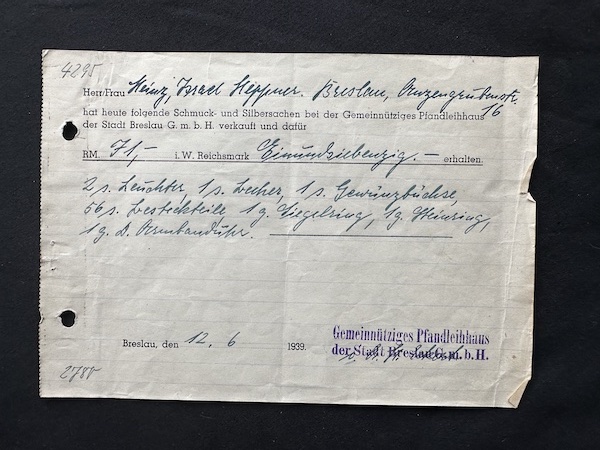 4295
Herr/Frau Heinz Israel Heppner. Breslau, Anzengruberstr.
16
hat heute folgende Schmuck- und Silbersachen bei der Gemeinnütziges Pfandleihhaus
der Stadt Breslau G. m. b. H. verkauft und dafür
RM. 71,- i. W. Reichsmark Einundsiebenzig.- erhalten.
2 s. Leuchter, 1 s. Becher, 1 s. Gewürzbüchse,
56 s. Besteckteile 1 g. Siegelring, 1 g. Steinring,
1 g. D. Armbanduhr.
Breslau, den 12. 6 1939.
Gemeinnütziges Pfandleihhaus
der Stadt Breslau G. m. b. H.
2788